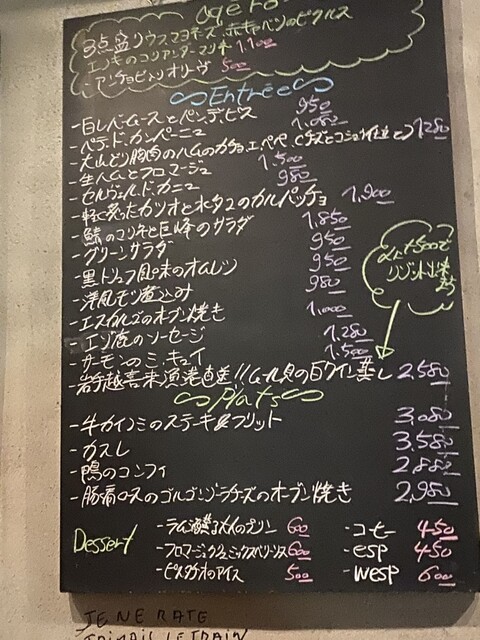 3点盛り ウズマヨネーズ、赤キャベツのピクルス
エノキのコリアンダーマリネ 1,100
・アンチョビ入りオリーヴ 500
Entrée
-白レバームースとパンデピス 950
-パテ・ド・カンパーニュ 1,080
-大山どり胸肉のハムのカチョ・エ・ペペ 1280
-生ハムとフロマージュ 1,500
-セルヴェル・ド・カニュ 980
-軽く炙ったカツオと水タコのカルパッチョ 1,900
-鯖のマリネと巨峰のサラダ 1,850
-グリーンサラダ 950
-黒トリュフ風味のオムレツ 950
-洋風モツ煮込み 980
-エスカルゴのオーブン焼き 1,000
-エゾ鹿のソーセージ 1,280
-サーモンのミ・キュイ 1,500
-岩手越喜来漁港直送!!ムール貝の白ワイン蒸し 2,580
+500で
リゾット
Plats
-牛カイノミのステーキ&フリット 3,080
-カスレ 3,580
-鴨のコンフィ 2,882
-豚肩ロースのゴルゴンゾーラチーズのオーブン焼き 2,980
Dessert
-ラム酒薫る大人のプリン 600
-フロマージュクリュミックスベリーソース 600
-ピスタチオのアイス 500
-コーヒー 450
-esp 450
-wesp 600
JE NE RATE
JAMAIS LE TRAIN